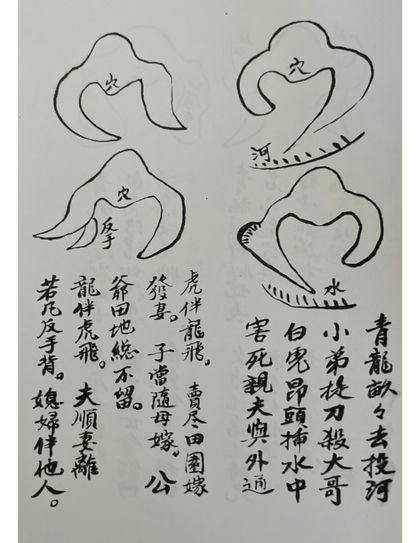 穴
河
水
青龍畝々去投河
小弟提刀殺大哥
白虎昂頭插水中
害死親夫與外通
穴
穴
反手
虎伴龍飛。賣尽田園嫁
發妻。子當隨母嫁。公
爺田地總不留。
龍伴虎飛。夫順妻離
若见反手背。媳婦伴他人。